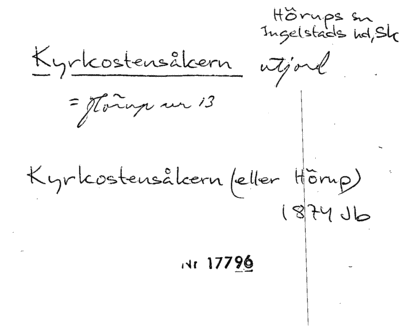 Hörups sn
Ingelstads hd, Sk
Kyrkostensåkern utjord
= Hörup nr 13
Kyrkostensåkern (eller Hörup)
1874 Jb
Nr 17796